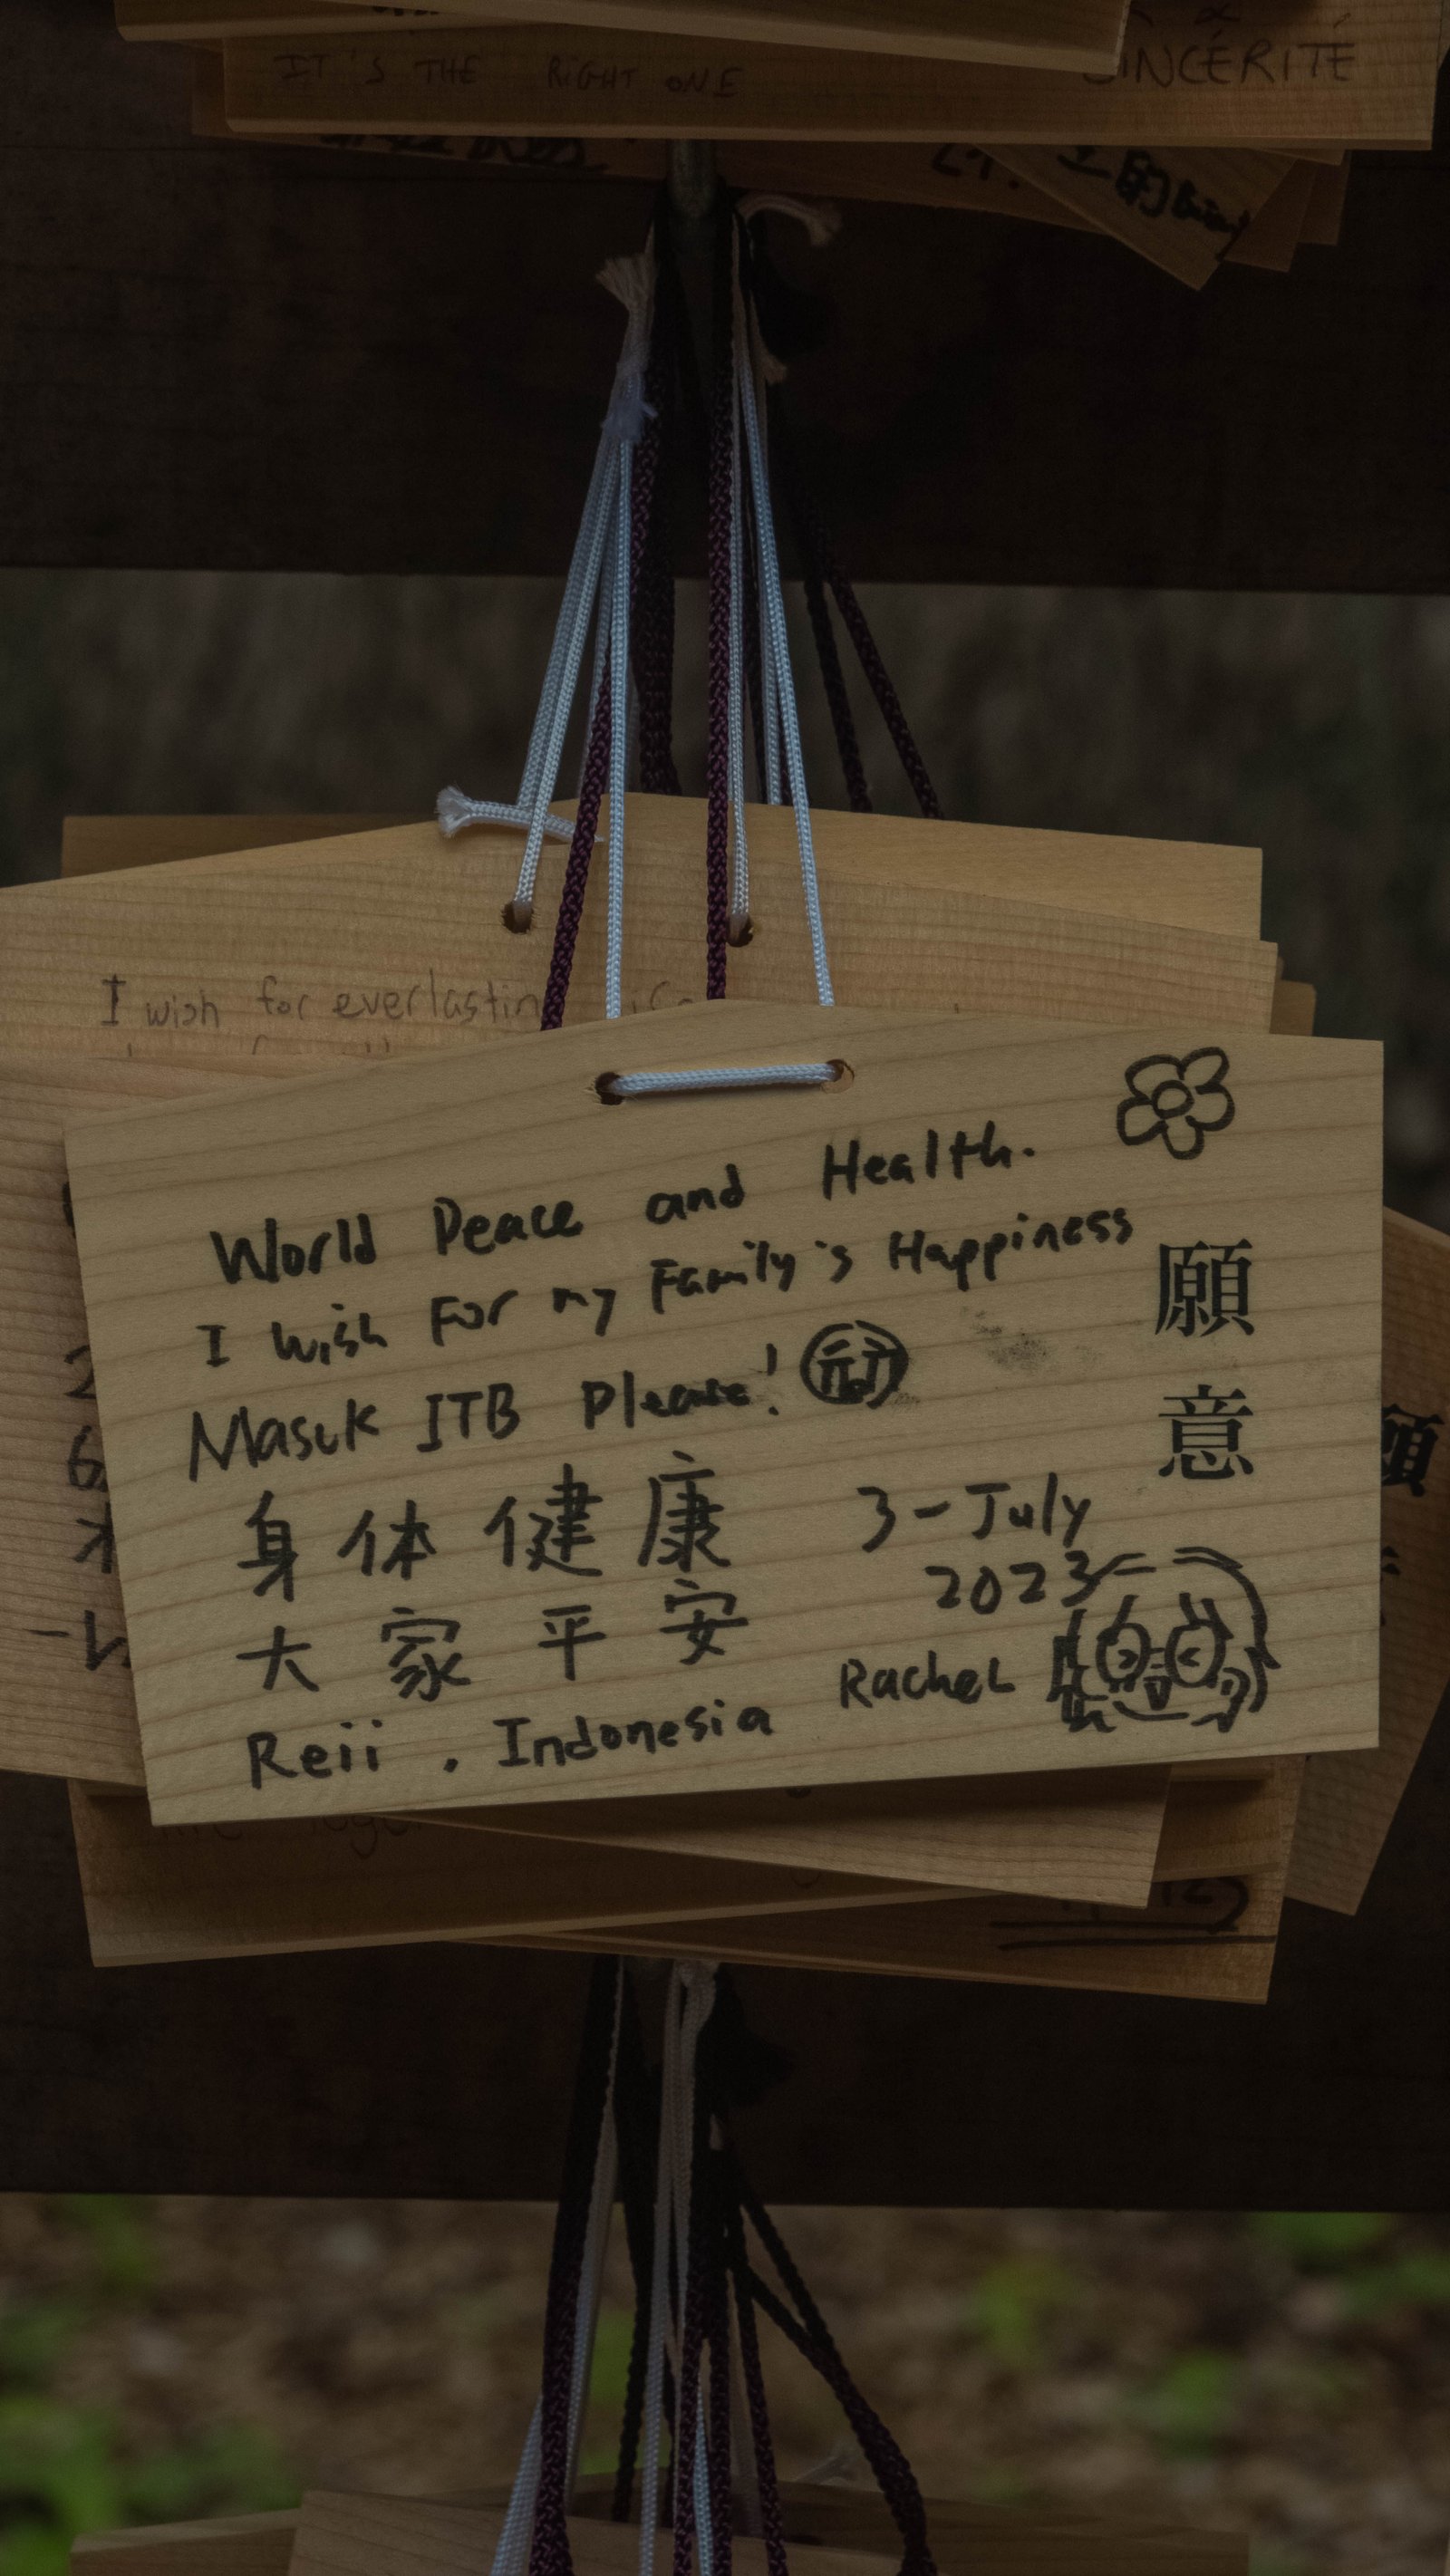 IT'S THE RIGHT ONE
SINCÉRITÉ
的
I wish for everlastin
World Peace and Health.
I wish For my Family's Happiness
Masuk ITB Please!
身体健康
大家平安
Reii . Indonesia
3-July
2023
Rachel
願意
願